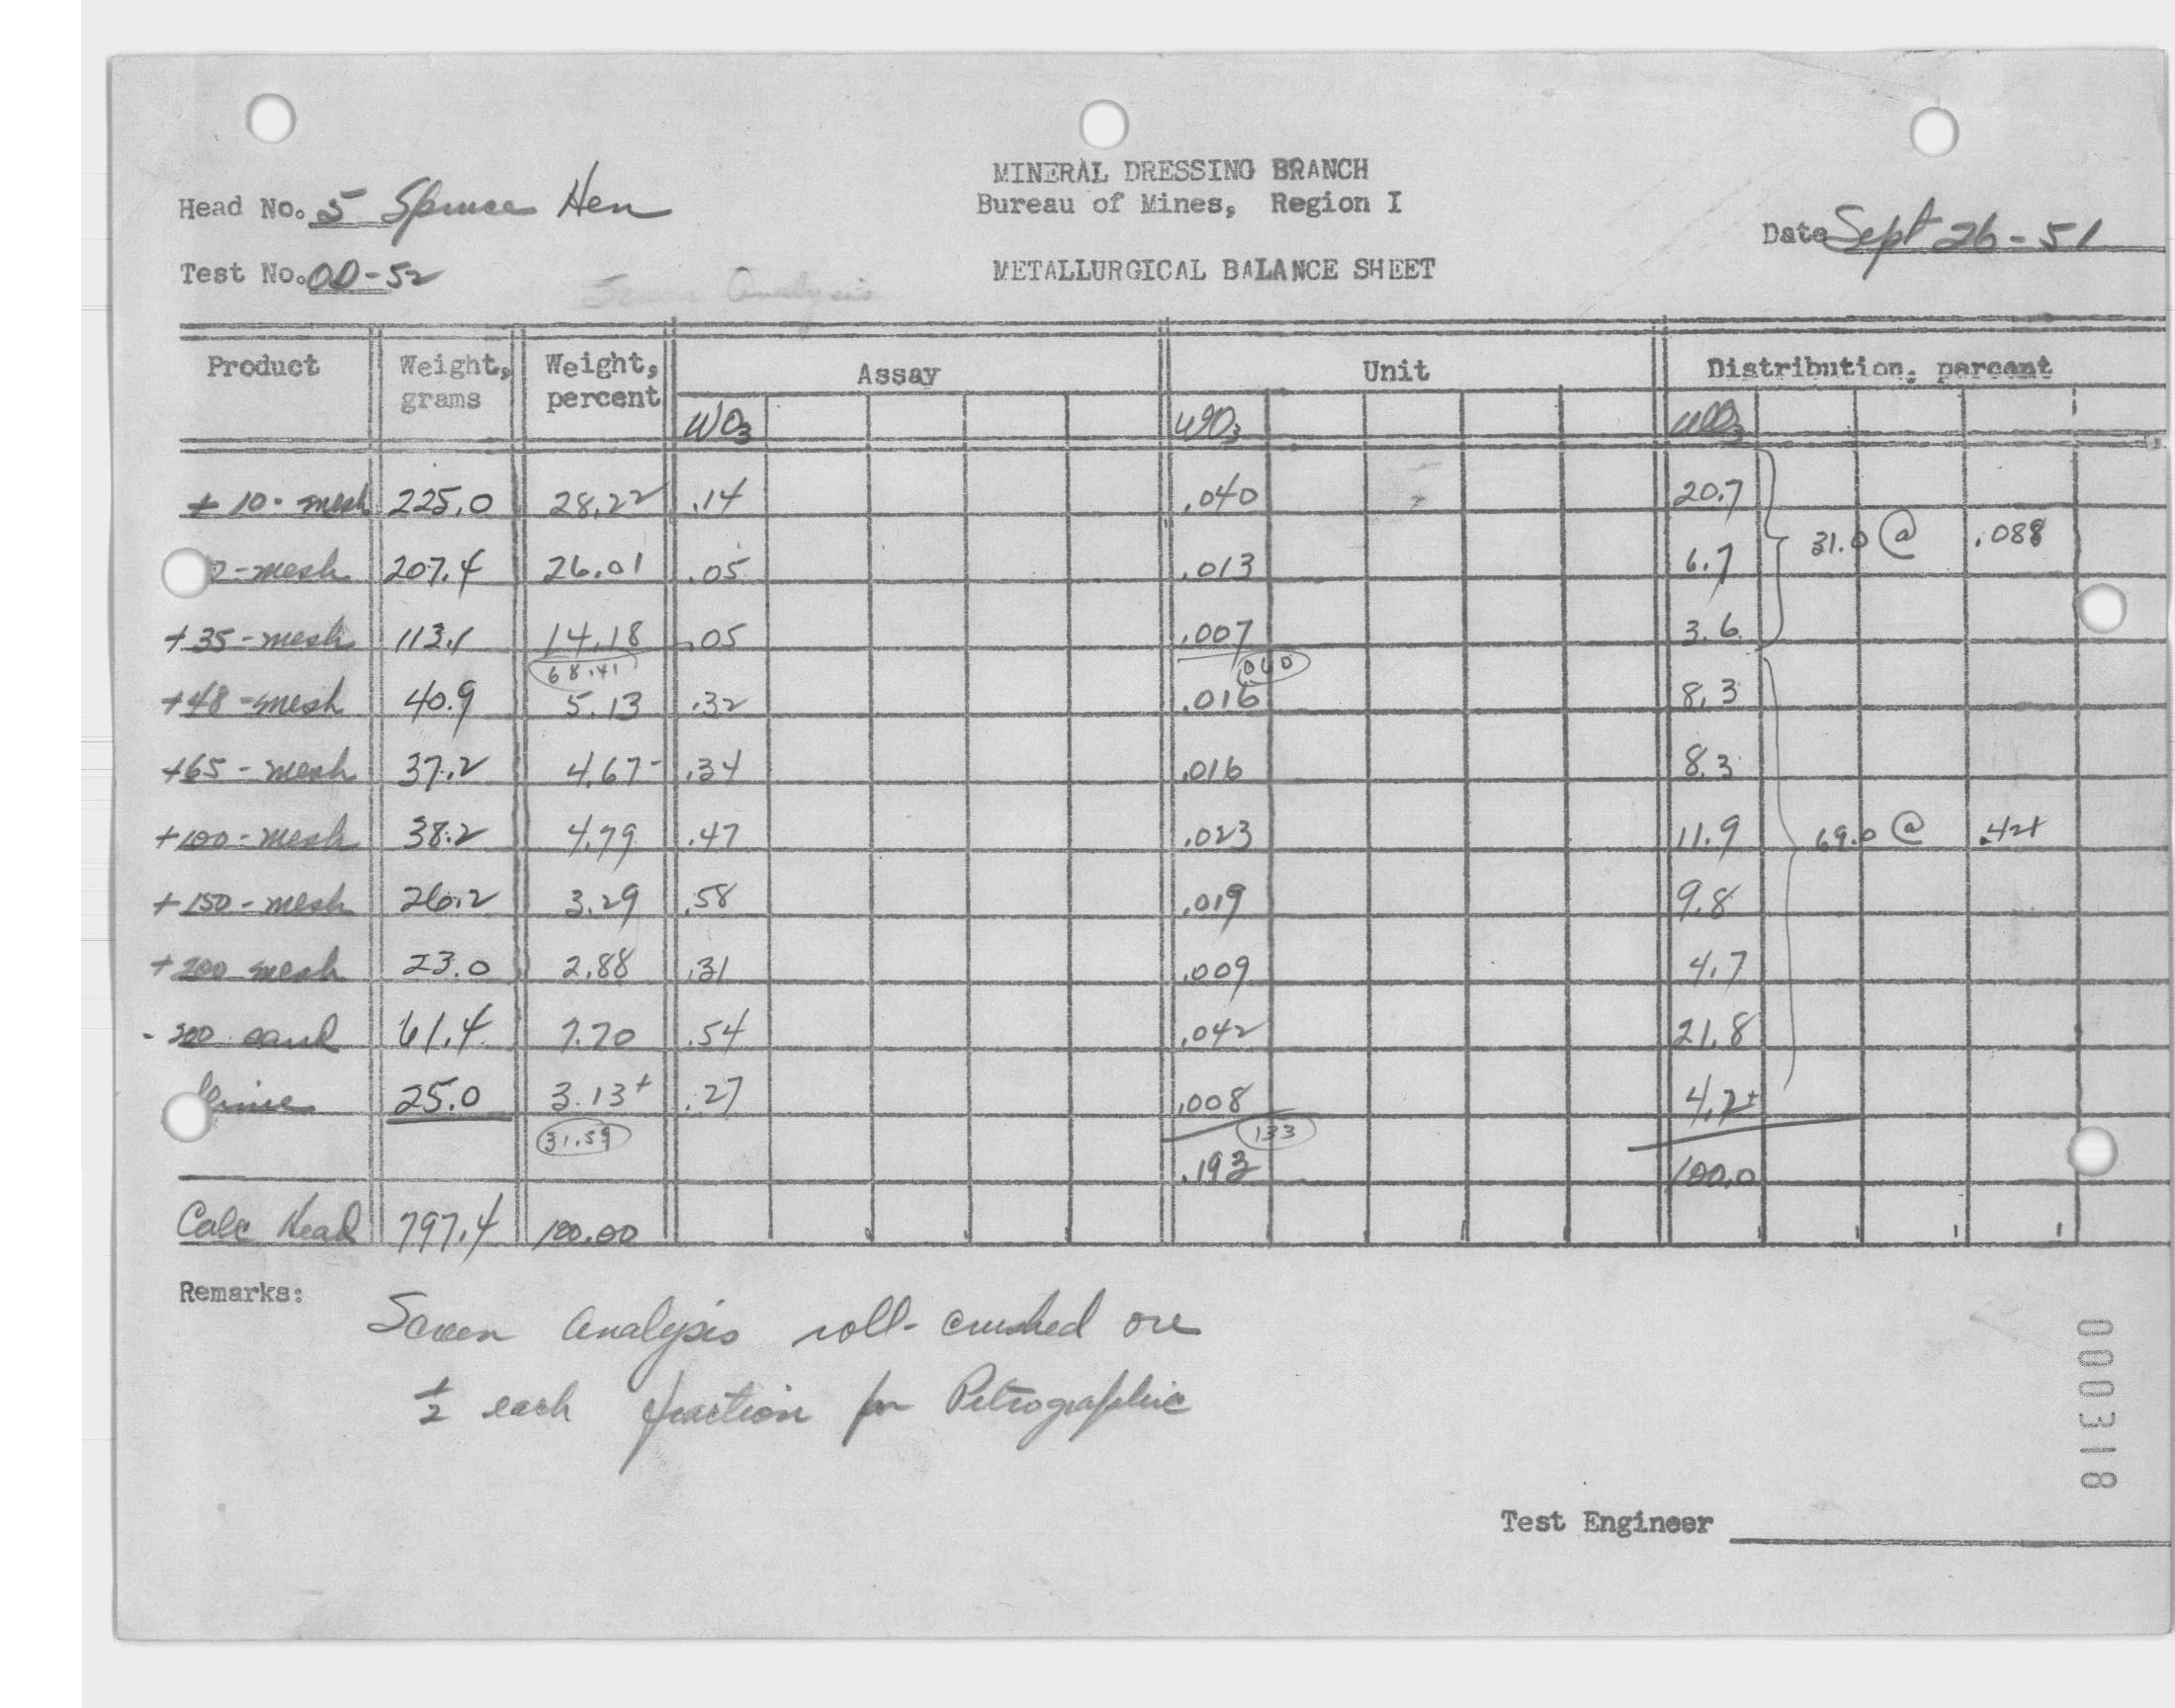 MINERAL DRESSING BRANCH
Head No. 5 Spruce Hen
Bureau of Mines, Region I
Date Sept 26-51
Test No. OD-52
Screen Analysis
METALLURGICAL BALANCE SHEET
Product Weight, grams Weight, percent Assay Unit Distribution, percent
WO3 WO3 WO3
+ 10-mesh 225.0 28.22 .14 .040 20.7
0-mesh 207.4 26.01 .05 .013 6.7 31.0 @ .088
+35-mesh 113.1 14.18 .05 .007 3.6
68.41 .060
+48-mesh 40.9 5.13 .32 .016 8.3
+65-mesh 37.2 4.67- .34 .016 8.3
+100-mesh 38.2 4.79 .47 .023 11.9 69.0 @ .421
+150-mesh 26.2 3.29 .58 .019 9.8
+200 mesh 23.0 2.88 .31 .009 4.7
-200 sand 61.4 7.70 .54 .042 21.8
slime 25.0 3.13+ .27 .008 4.2+
31.59 133
.193 100.0
Calc Head 797.4 100.00
Remarks:
Screen Analysis roll-crushed ore
1/2 each fraction for Petrographic
000318
Test Engineer